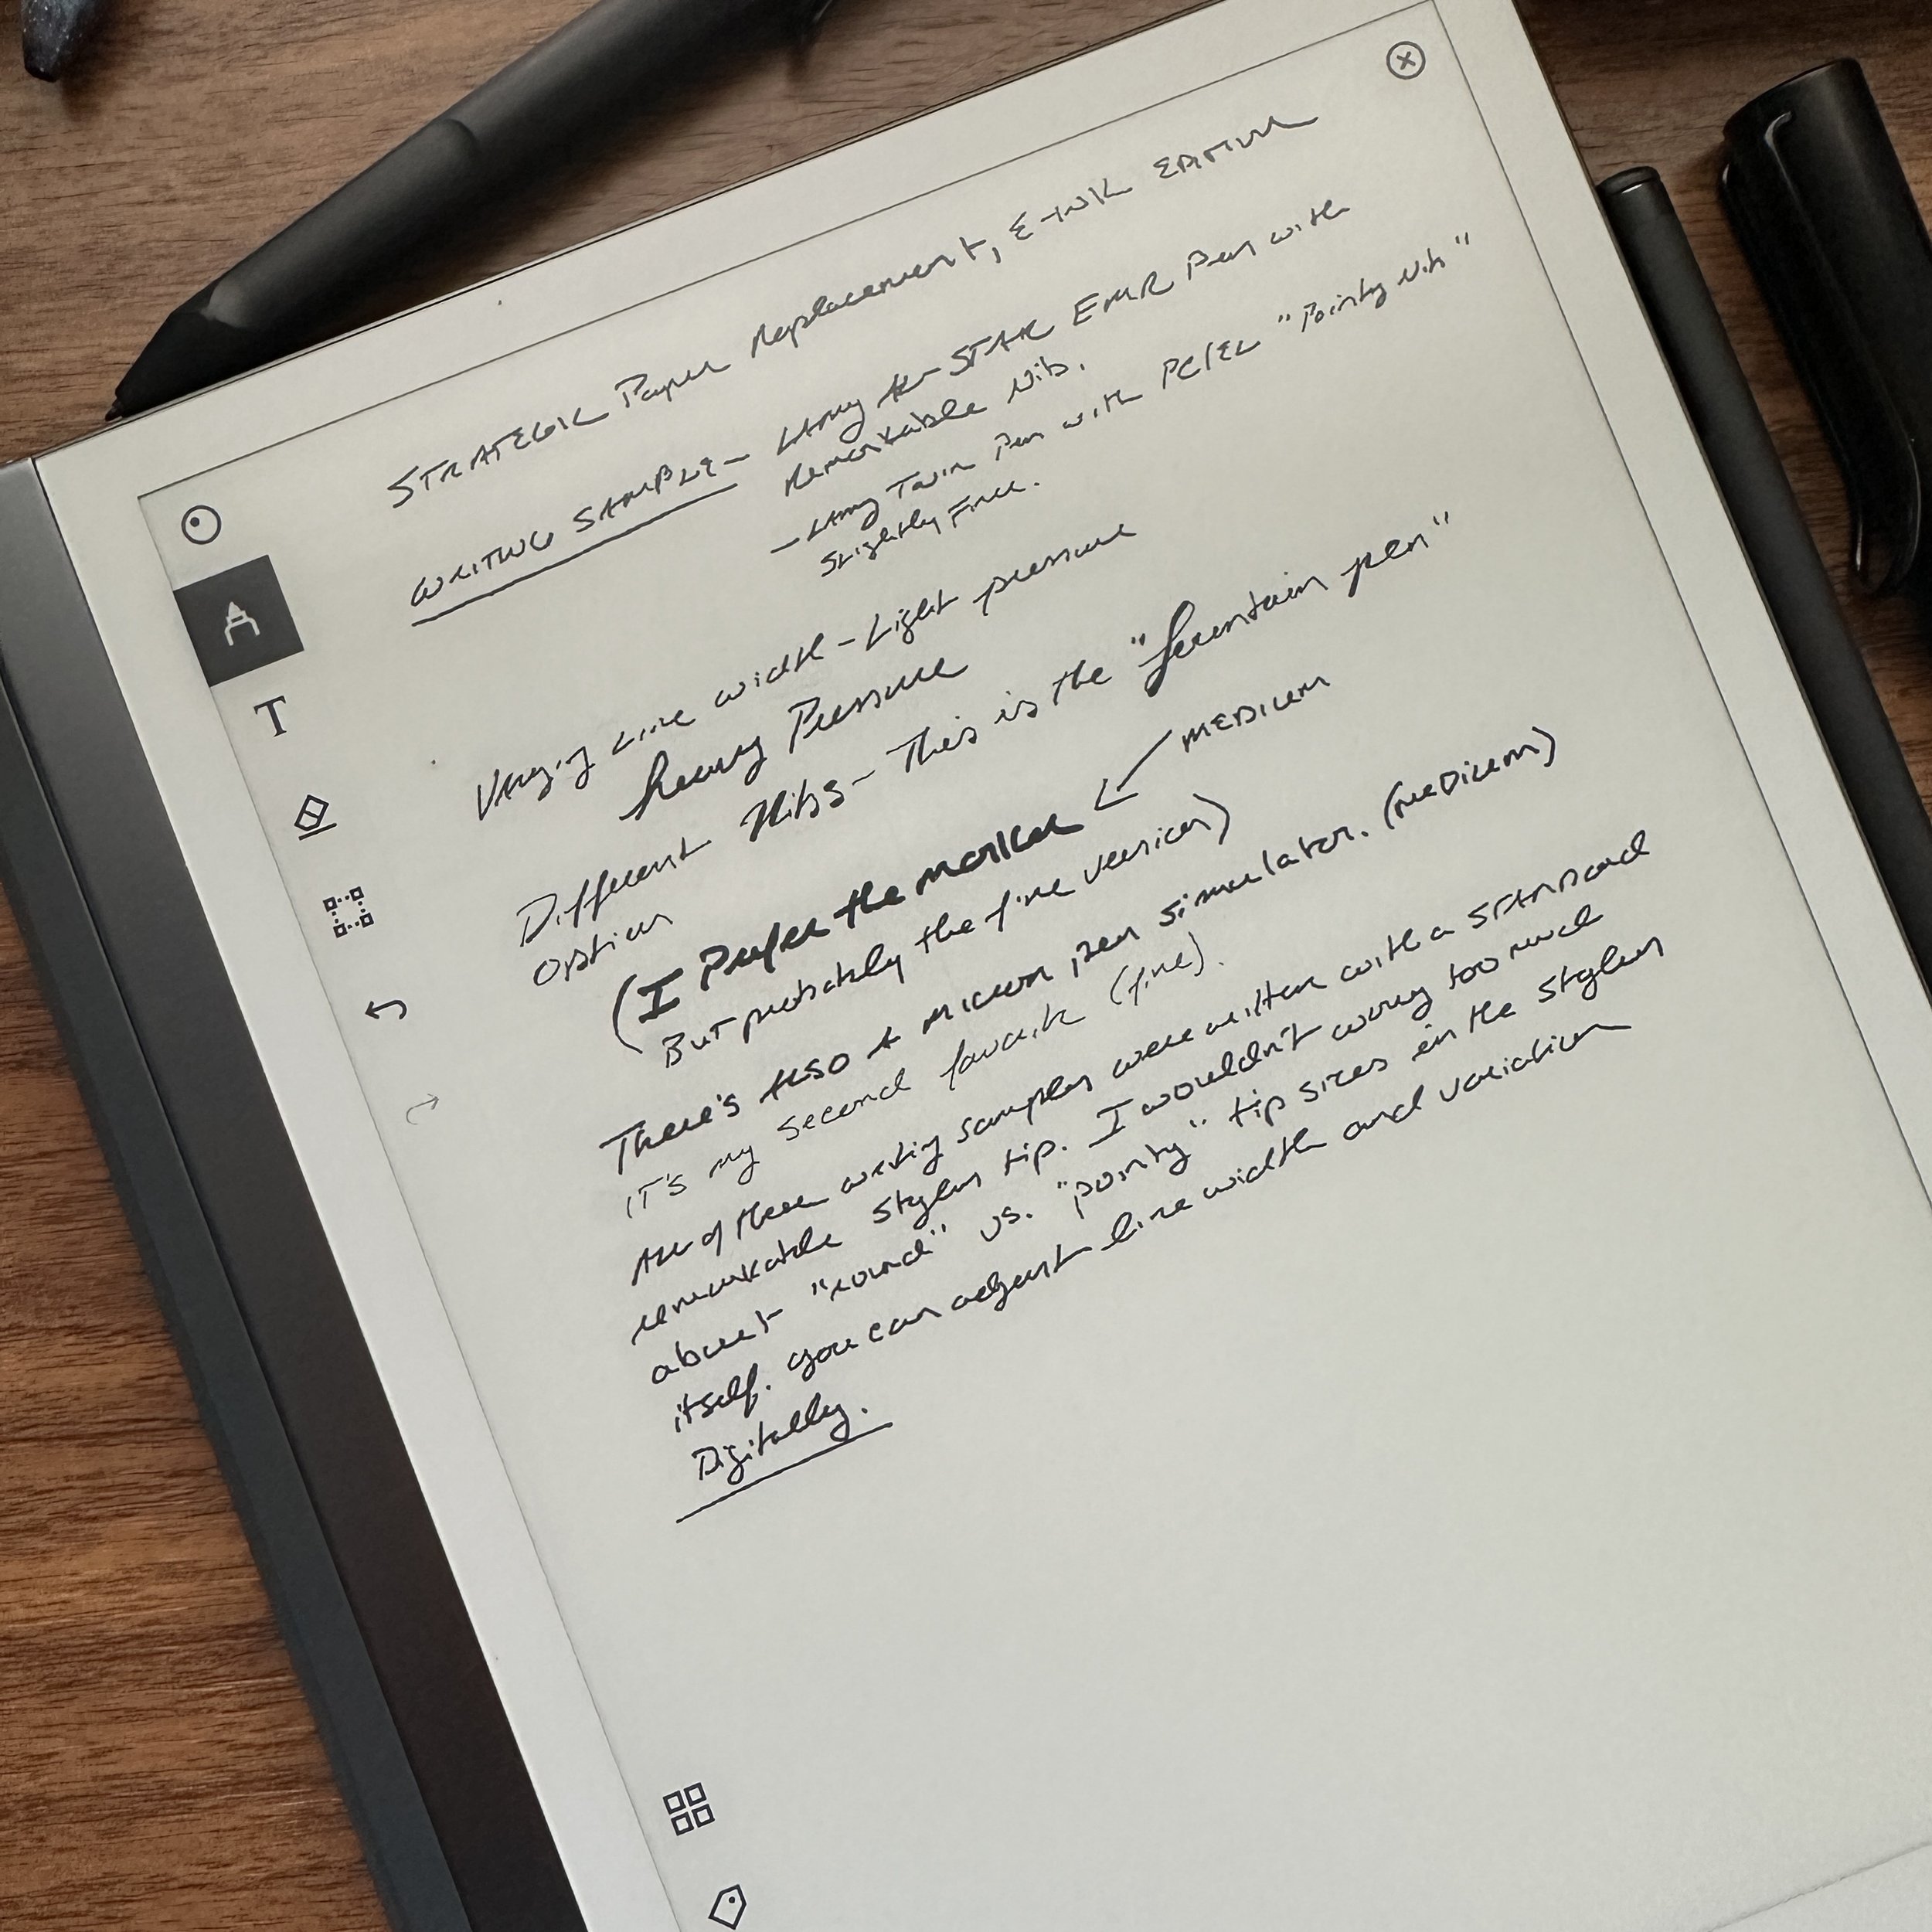 STRATEGIC Paper Replacement, E-INK EDITION
WRITING SAMPLE - LAMY AL-STAR EMR Pen with
Remarkable Nib.
- LAMY Twin Pen with PC/EL "Pointy Nib"
Slightly Finer.
Varying Line width - Light pressure
heavy Pressure
Different Nibs - This is the "fountain pen"
option
(I Prefer the marker ← MEDIUM
But probably the fine version)
There's Also A micron pen simulator. (medium)
IT's my second favorite (fine).
All of these writing samples were written with a STANDARD
remarkable stylus tip. I wouldn't worry too much
about "round" vs. "pointy" tip sizes in the stylus
itself. you can adjust line width and variation
Digitally.
T